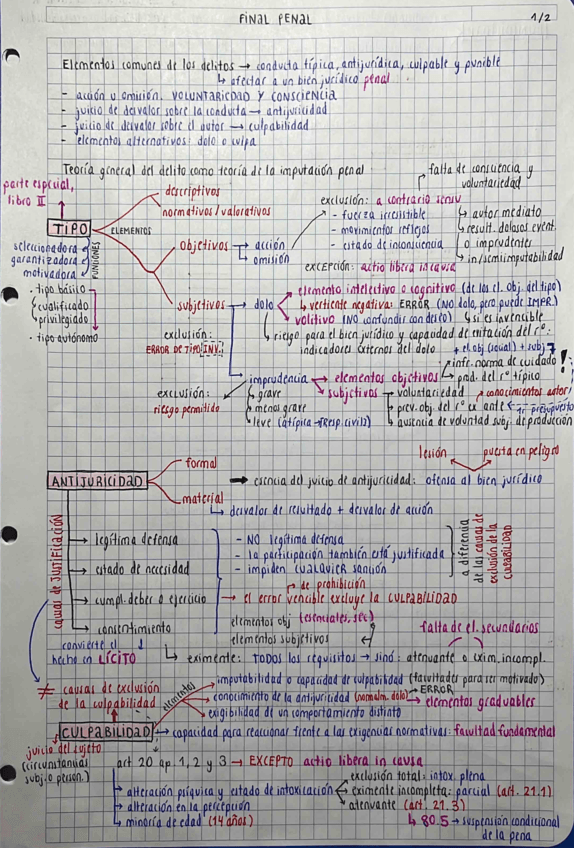 FINAL PENAL
1/2
Elementos comunes de los delitos → conducta típica, antijurídica, culpable y punible
↳ afectar a un bien jurídico penal
- acción u omisión. VOLUNTARIEDAD Y CONSCIENCIA
- juicio de desvalor sobre la conducta → antijuricidad
- juicio de desvalor sobre el autor → culpabilidad
- elementos alternativos: dolo o culpa
Teoría general del delito como teoría de la imputación penal
parte especial,
libro II
TIPO
ELEMENTOS
FUNCIONES
seleccionadora
garantizadora
motivadora
· tipo básico
cualificado
privilegiado
· tipo autónomo
descriptivos
normativos / valorativos
objetivos → acción
omisión
exclusión: a contrario sensu
falta de consciencia y
voluntariedad
- fuerza irresistible
- movimientos reflejos
- estado de inconsciencia
autor mediato
result. dolosos event.
o imprudentes
in/semiimputabilidad
EXCEPCIÓN: actio libera in causa
subjetivos → dolo
elemento intelectivo o cognitivo (de los el. obj. del tipo)
↳ vertiente negativa: ERROR (NO dolo, pero puede IMPR.)
volitivo (NO confundir con deseo)
↳ si es invencible
↳ riesgo para el bien jurídico y capacidad de evitación del rº:
indicadores externos del dolo
+ el. obj (igual) + subj
exclusión:
ERROR DE TIPO INV.
imprudencia → elementos objetivos
infr. norma de cuidado
prod. del rº típico
!
subjetivos → voluntariedad
conocimientos autor
prev. obj. del rº ex ante
presupuesto
ausencia de voluntad subj. de producción
exclusión:
riesgo permitido
grave
menos grave
leve (atípica → resp. civil)
ANTIJURICIDAD
formal
material
↳ desvalor de resultado + desvalor de acción
→ esencia del juicio de antijuricidad: ofensa al bien jurídico
lesión
puesta en peligro
causas de JUSTIFICACIÓN
→ legítima defensa
→ estado de necesidad
→ cumpl. deber o ejercicio
→ consentimiento
- NO legítima defensa
- la participación también está justificada
- impiden CUALQUIER sanción
a diferencia
de las causas de
exclusión de la
CULPABILIDAD
de prohibición
→ el error vencible excluye la CULPABILIDAD
elementos obj (esenciales, sec)
elementos subjetivos
falta de el. secundarios
convierte el
hecho en LÍCITO
↳ eximente: TODOS los requisitos → sino: atenuante o exim. incompl.
≠ causas de exclusión
de la culpabilidad
CULPABILIDAD
elementos
imputabilidad o capacidad de culpabilidad (facultades para ser motivado)
conocimiento de la antijuricidad (normalm. dolo) → ERROR
→ elementos graduables
exigibilidad de un comportamiento distinto
→ capacidad para reaccionar frente a las exigencias normativas: facultad fundamental
juicio del sujeto
(circunstancias
subj. o person.)
art 20 ap. 1, 2 y 3 → EXCEPTO actio libera in causa
→ alteración psíquica y estado de intoxicación
→ alteración en la percepción
→ minoría de edad (14 años)
exclusión total: intox. plena
eximente incompleta: parcial (art. 21.1)
atenuante (art. 21.3)
↳ 80.5 → suspensión condicional
de la pena